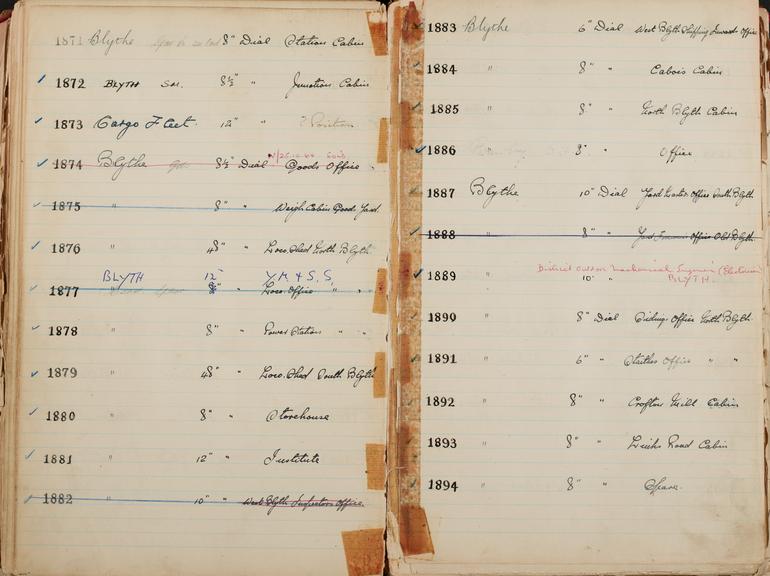 1871 Blythe 8" Dial Station Cabin
1872 BLYTH 8½" " Junction Cabin
1873 Cargo Fleet 12" " ? Position
1874 Blythe 8½" Dial Goods Office
1875 " 8" " Weigh Cabin Goods Yard
1876 " 48" " Loco. Shed North Blyth
BLYTH 12" Y.M & S.S,
1877 " Loco. Office " "
1878 " 8" " Power Station " "
1879 " 48" " Loco. Shed South Blyth
1880 " 8" " Storehouse
1881 " 12" " Institute
1882 " 10" " West Blyth Inspectors Office.
1883 Blythe 6" Dial West Blyth Shipping Inwards Office
1884 " 8" " Cabin
1885 " 8" " North Blyth Cabin
1886 8" " Office
1887 Blythe 10" Dial Yard Office South Blyth
1888 " 8" " Yard Office Old Blyth
District Mechanical Engineer
1889 " 10" " BLYTH.
1890 " 8" Dial Sidings Office North Blyth
1891 " 6" " Staithes Office " "
1892 " 8" " Crofton Mill Cabin
1893 " 8" " Links Road Cabin
1894 " 8" " Spare